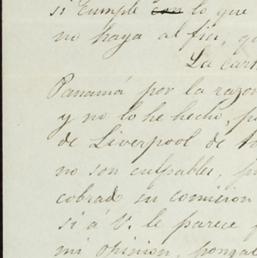 si cumple con lo que
no haya al fin, qu
La cart
Panamá por la razon
y no lo he hecho, p
de Liverpool de
no son culpables, p
cobrado su comision
si á V. le parece
mi opinion, ponga